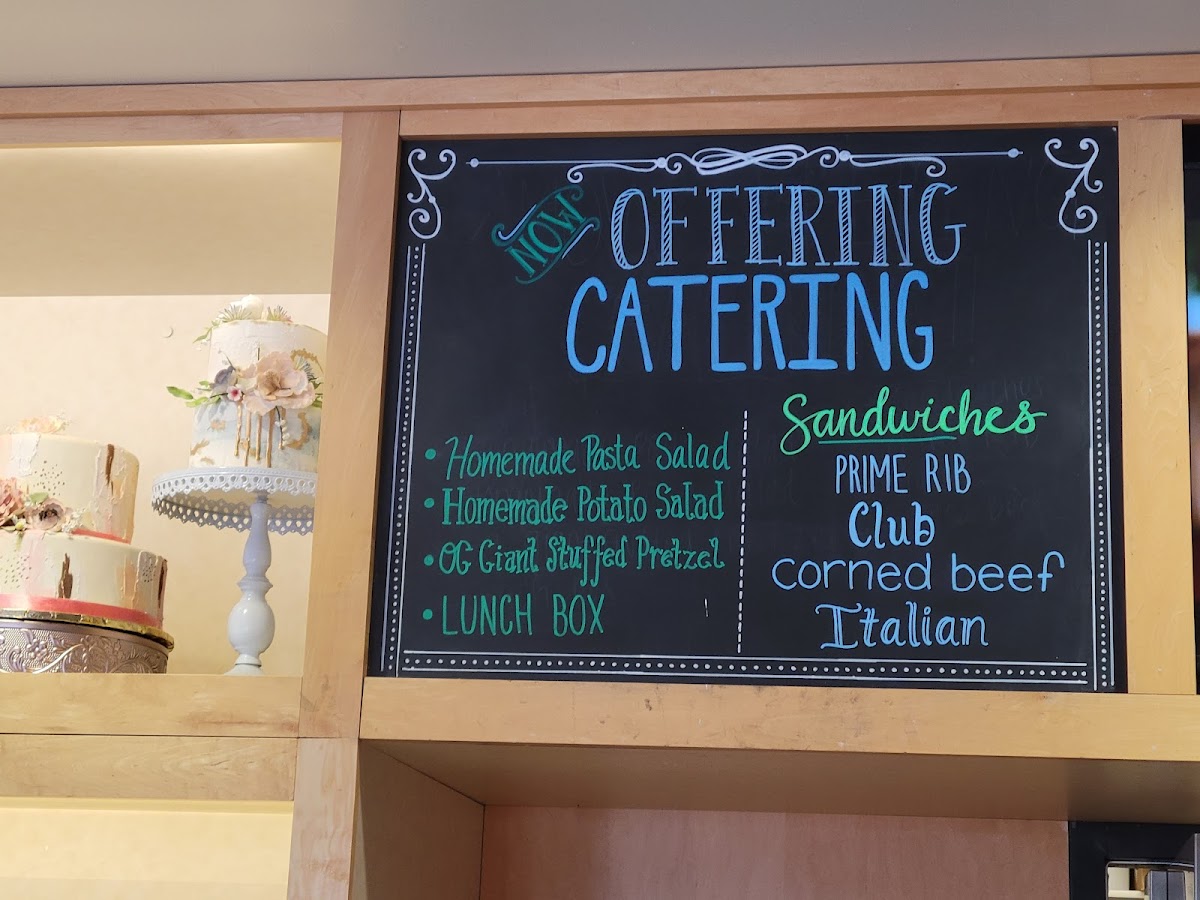 NOW OFFERING
CATERING
• Homemade Pasta Salad
• Homemade Potato Salad
• OG Giant Stuffed Pretzel
• LUNCH BOX
Sandwiches
PRIME RIB
Club
corned beef
Italian